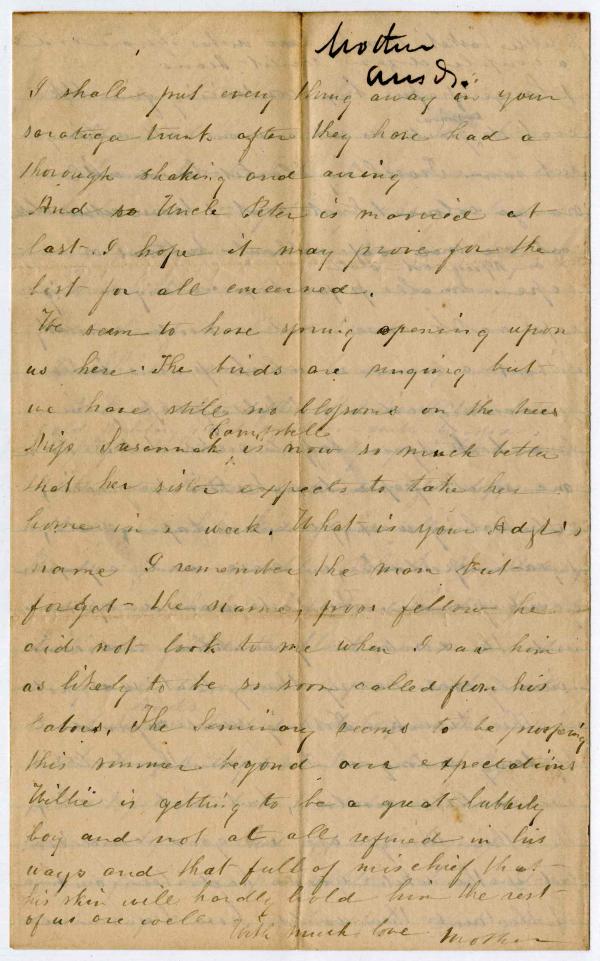 Mother
Ansd.
I shall put every thing away in your
saratoga trunk after they have had a
thorough shaking and airing
And so Uncle Peter is married at
last. I hope it may prove for the
best for all concerned.
We seem to have spring opening upon
us here. The birds are singing but
we have still no blossoms on the trees
Campbell
Miss Susannah ^ is now so much better
that her sister expects to take her
home in a week. What is your Adjt's
name I remember the man but
forget the name, poor fellow he
did not look to me when I saw him
as likely to be so soon called from his
labors. The Seminary seems to be prospering
this summer beyond our expectations
Willie is getting to be a great lubberly
boy and not at all refined in his
ways and that full of mischief that
his skin will hardly hold him the rest
of us are well
With much love Mother